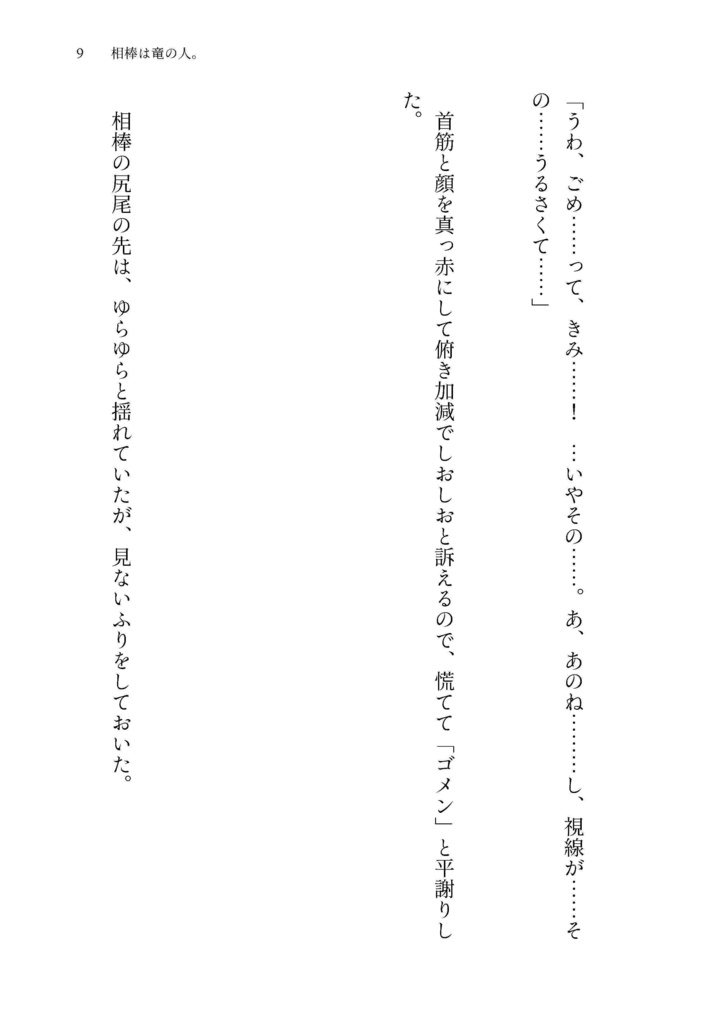 9 相棒は竜の人。
「うわ、ごめ……って、きみ……！　…いやその……。あ、あのね………し、視線が……そ
の……うるさくて……」
首筋と顔を真っ赤にして俯き加減でしおしおと訴えるので、慌てて「ゴメン」と平謝りし
た。
相棒の尻尾の先は、ゆらゆらと揺れていたが、見ないふりをしておいた。